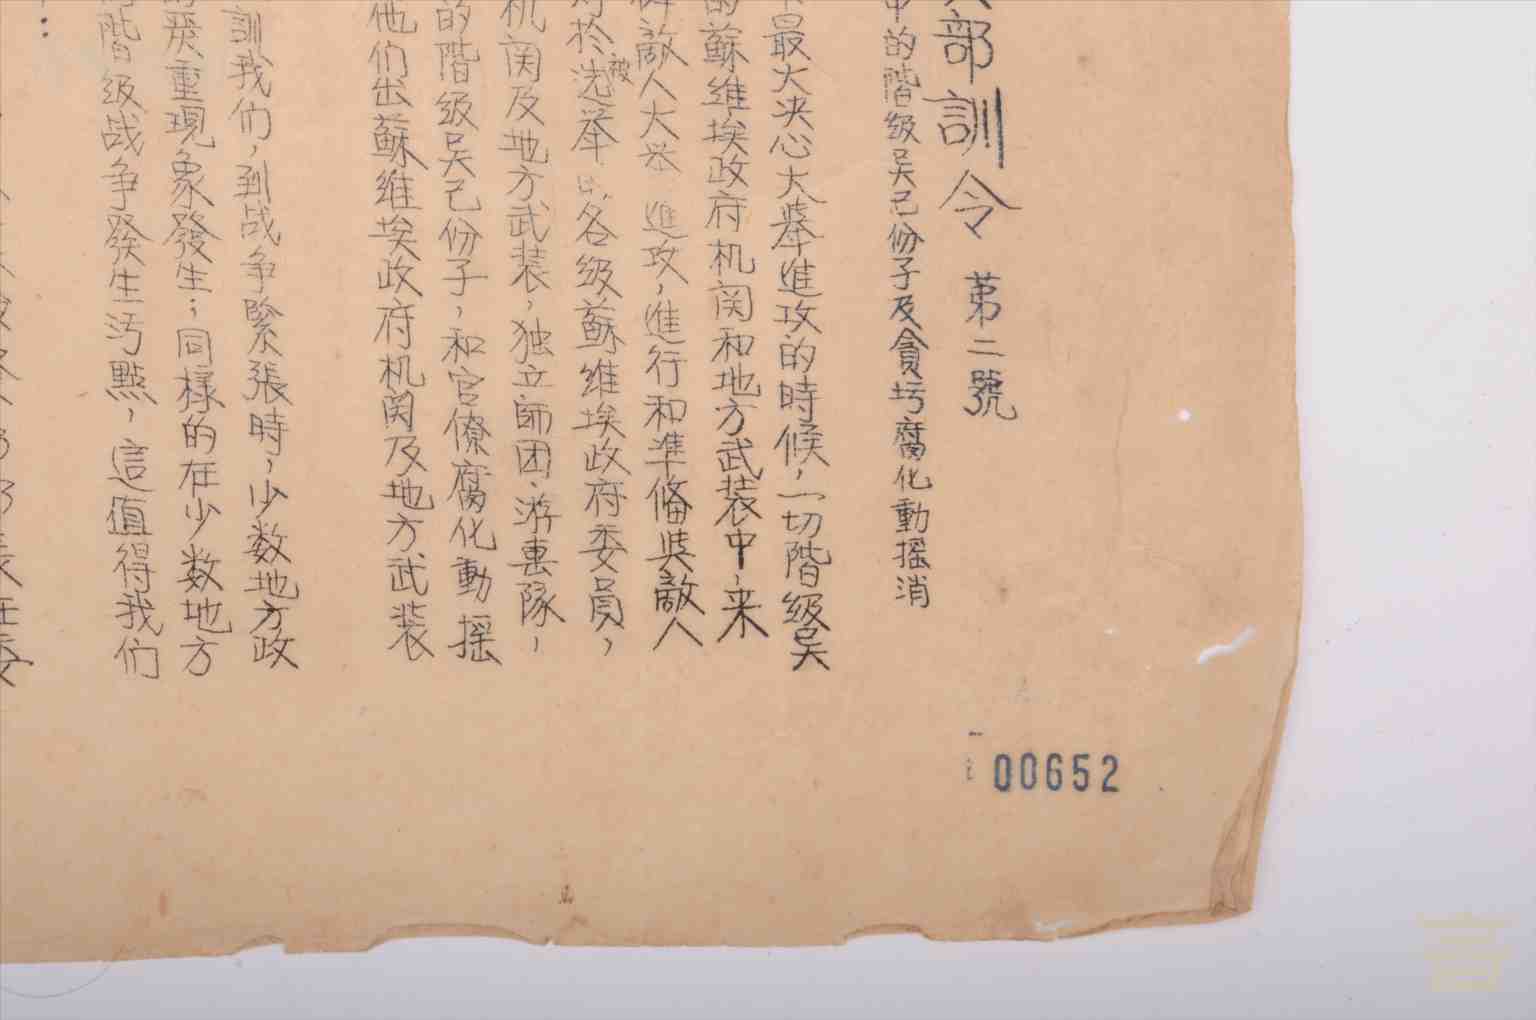 部訓令 第二號
中的階級吴己份子及貪圬腐化動摇消
最大决心大舉進攻的時候，一切階級吴
的蘇維埃政府机関和地方武装中，来
敵人大举進攻，進行和準俻奘敵人
於被选举各級蘇維埃政府委員，
机関及地方武装，独立師团、游軎隊，
的階級吴己份子，和官僚腐化動摇
他们出蘇維埃政府机関及地方武装
訓我们，到战争緊張時，少数地方政
嚴重現象發生；同樣的在少数地方
階級战争發生污點，這值得我们
00652